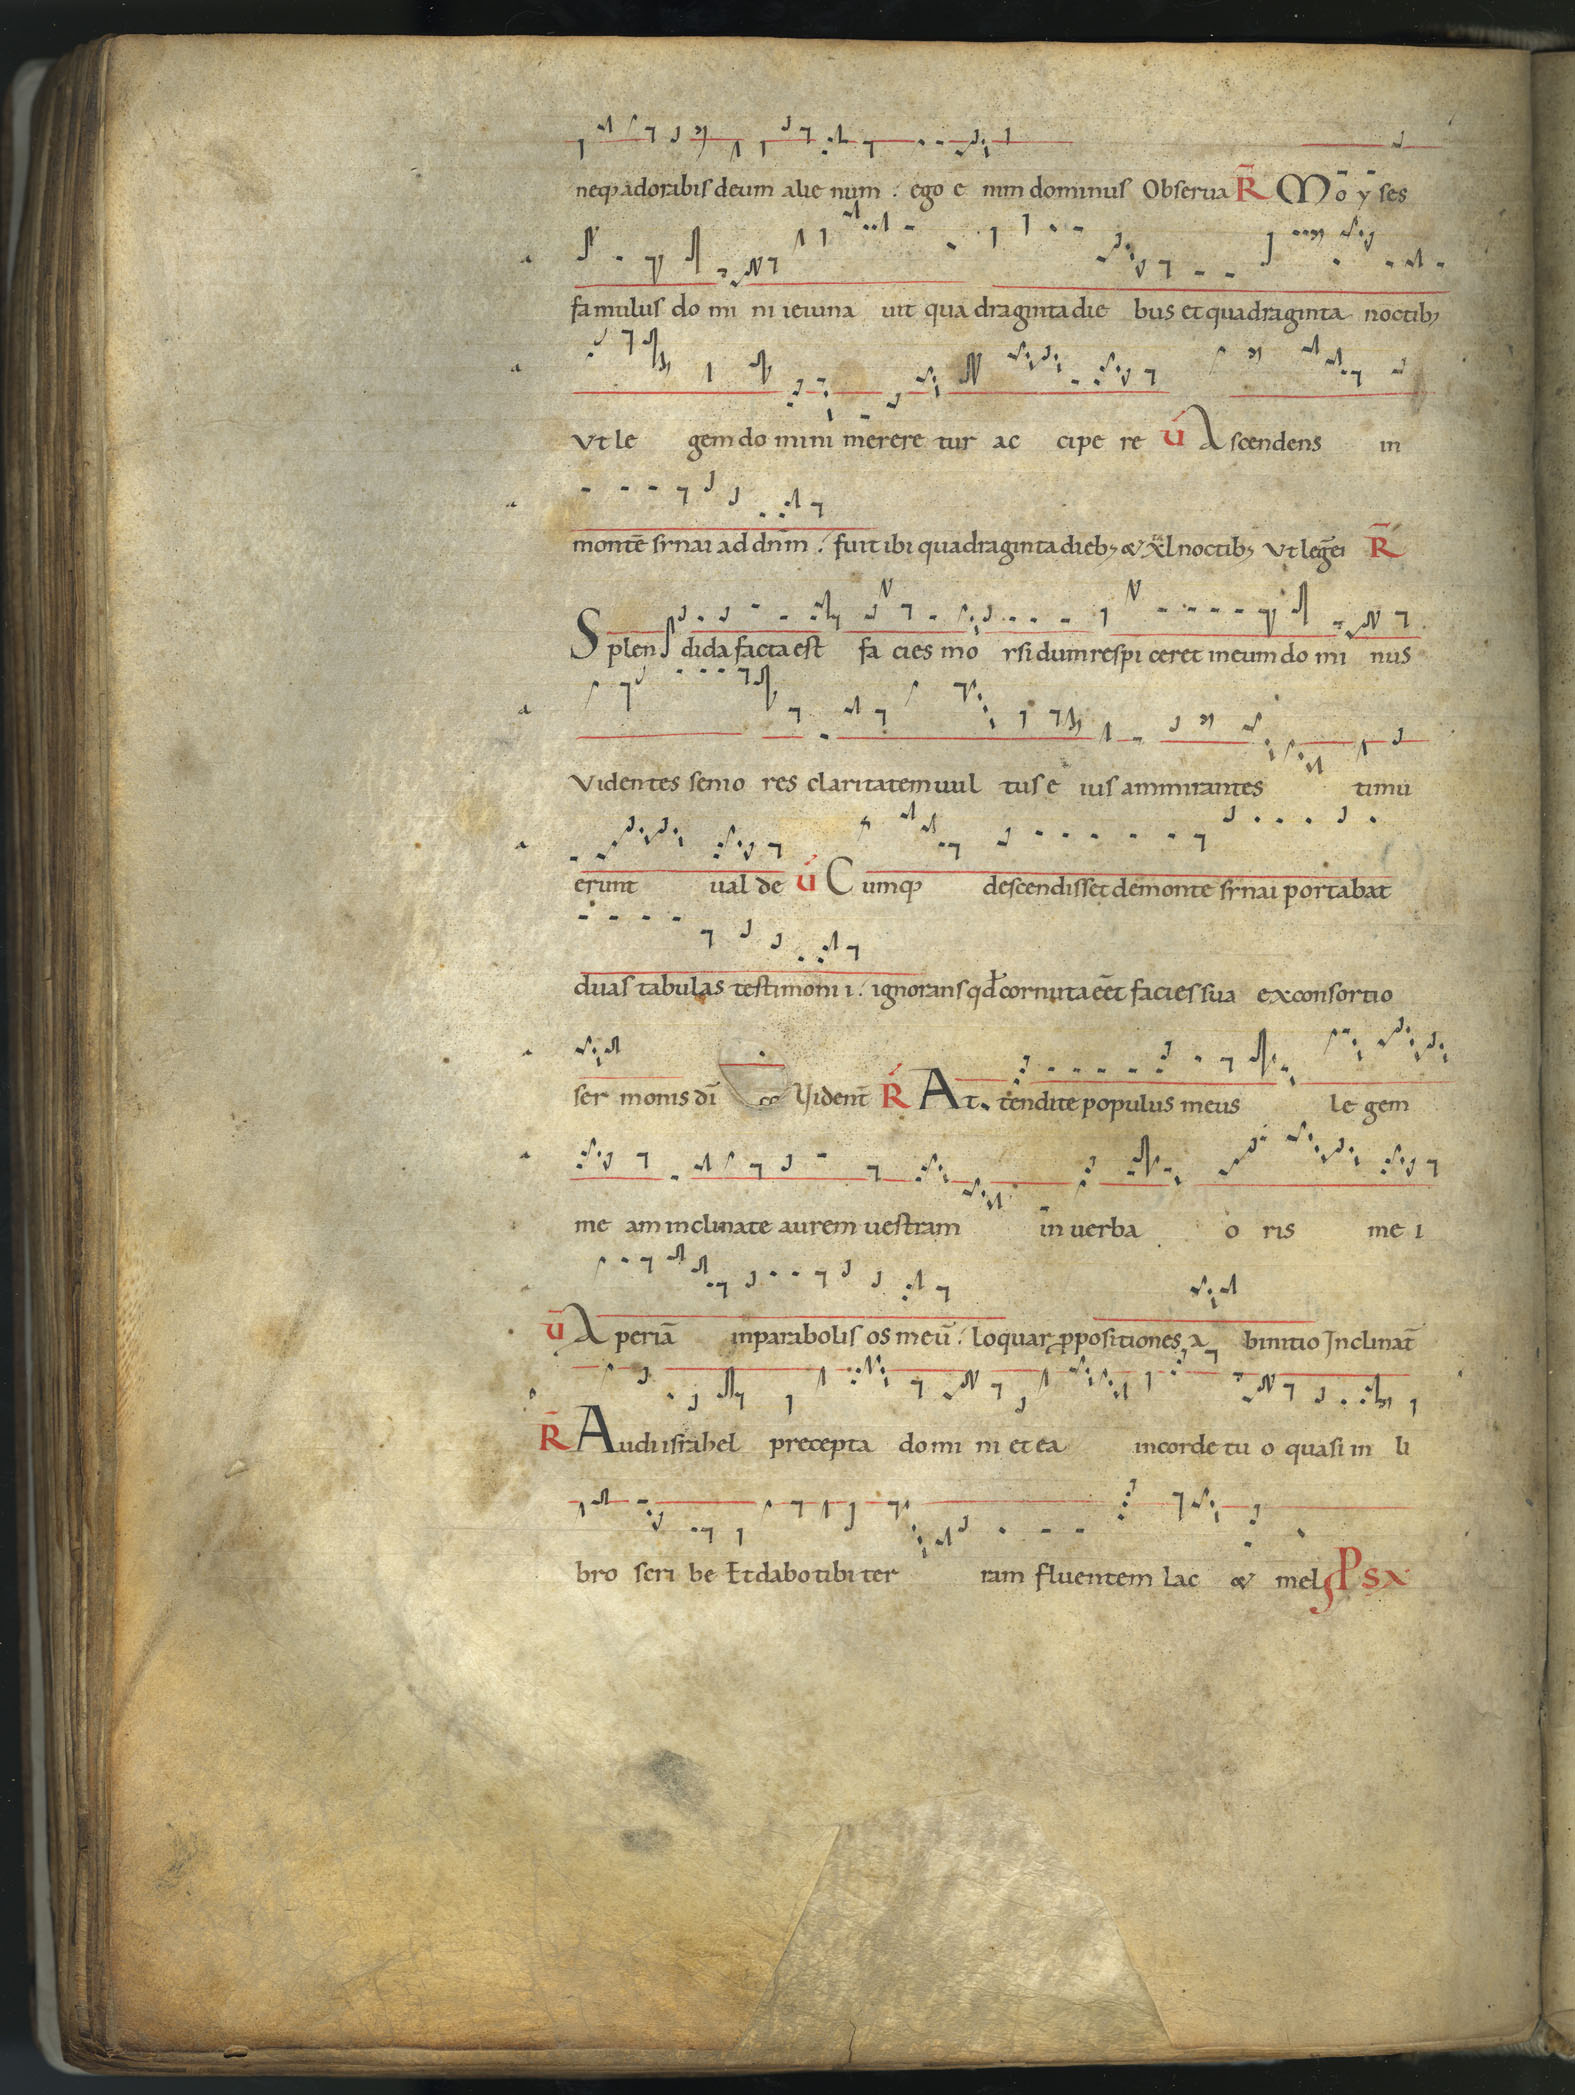 neqꝫ adorabis deum alie num . ego e nim dominus Obserua R̃ Mo y ses
a famulus do mi ni ieiuna uit qua draginta die bus et quadraginta noctibꝫ
a Vt le gem do mini mērere tur ac cipe re ú Ascendens in
a montē sẏnai ad dn̄m . fuit ibi quadraginta diebꝫ & xl noctibꝫ Vt legē R̃
Splen dida facta est fa cies mo ysi dum respi ceret in eum do mi nus
a Videntes senio res claritatem uul tus e ius ammirantes timu
a erunt ual de ú Cumqꝫ descendisset demonte sẏnai portabat
duas tabulas testimoni i . ignorans qđ cornuta eēt facies sua exconsortio
a ser monis dī Vident̄ Ŕ At tendite populus meus le gem
a me am inclinate aurem uestram in uerba o ris me i
ū Aperiā inparabolis os meū . loquar ꝓpositiones a binitio Inclinat̄
R̃ Audi israhel precepta do mi ni et ea incorde tu o quasi in li
bro scri be Et dabo tibi ter ram fluentem lac & mel PSA